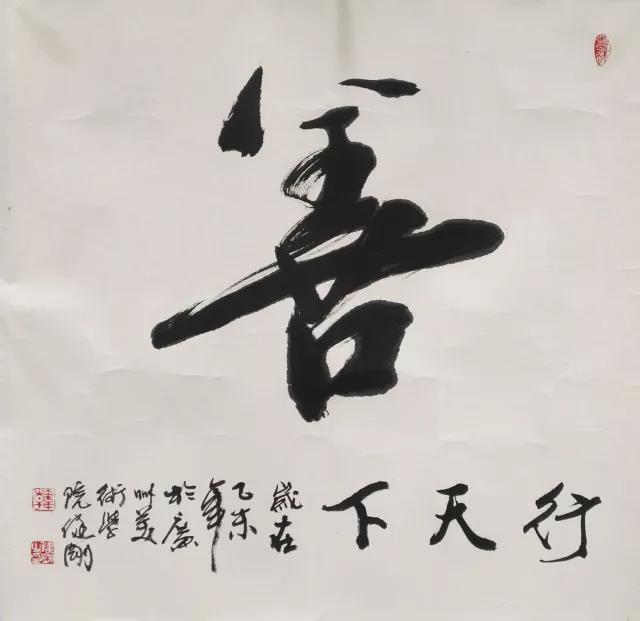 善
行天下
歲在
乙未年
於廣
州美
術學
院健剛